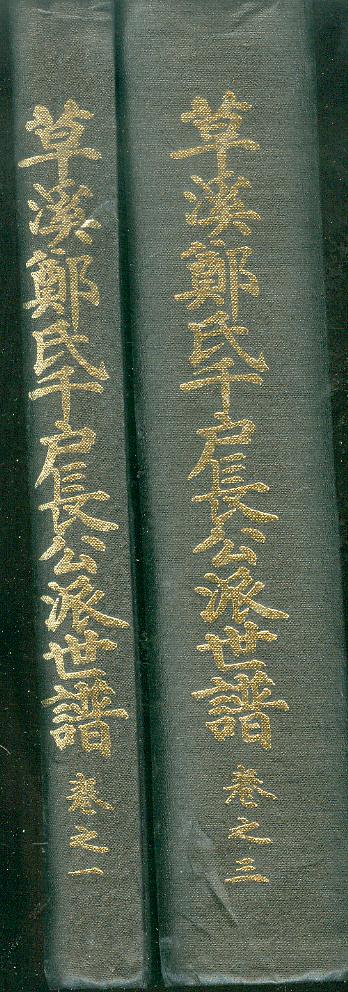 草溪鄭氏千户長公派世譜 卷之一
草溪鄭氏千户長公派世譜 卷之三